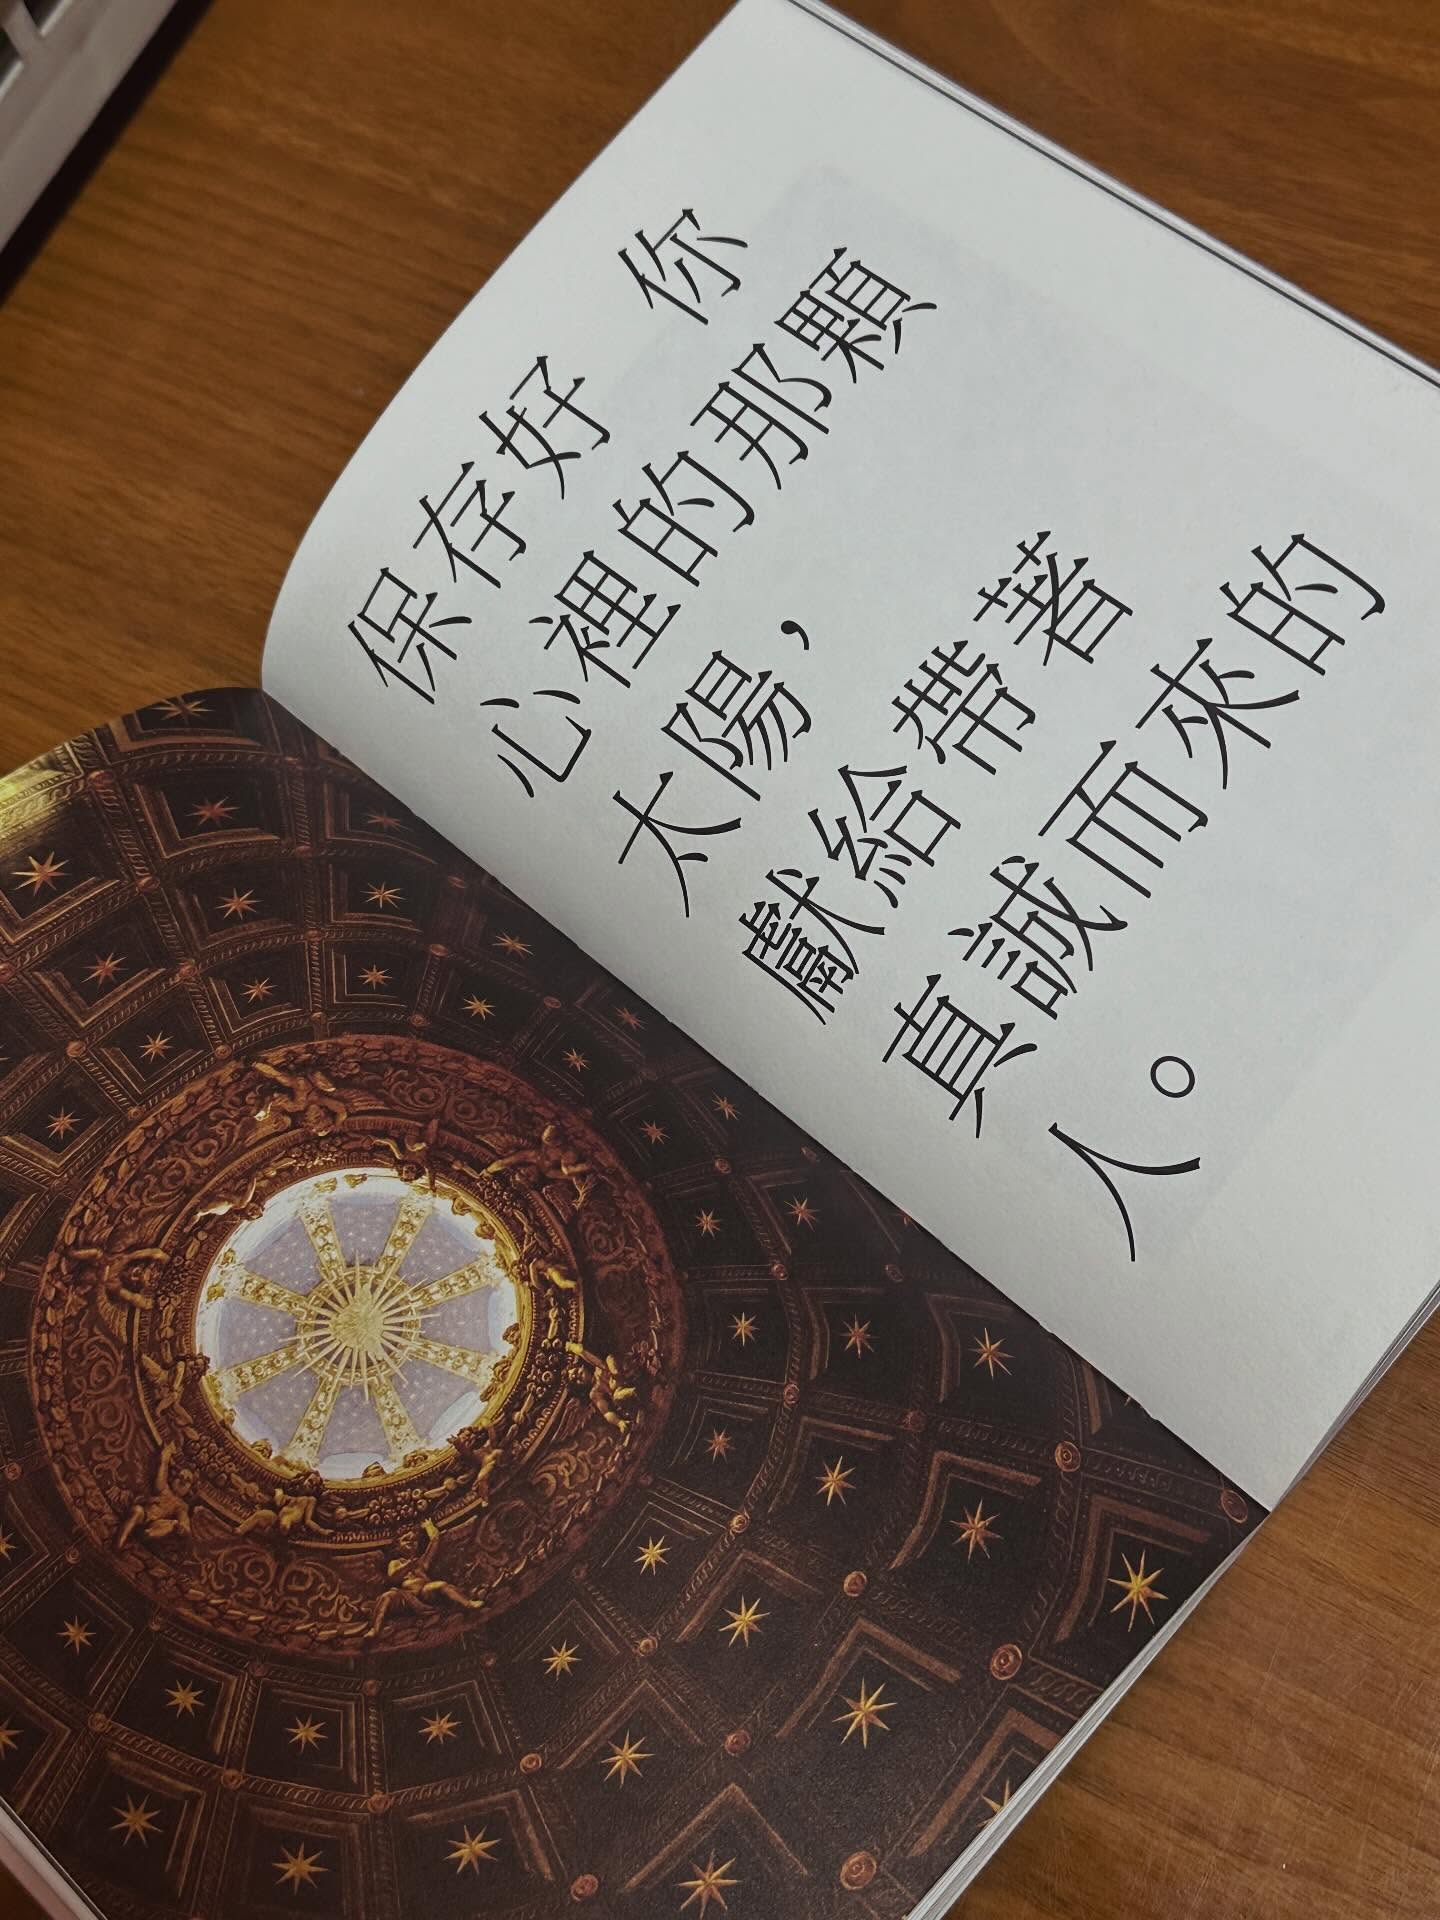 保存好 你
心裡的那顆
太陽，
獻給帶著
真誠而來的
人。